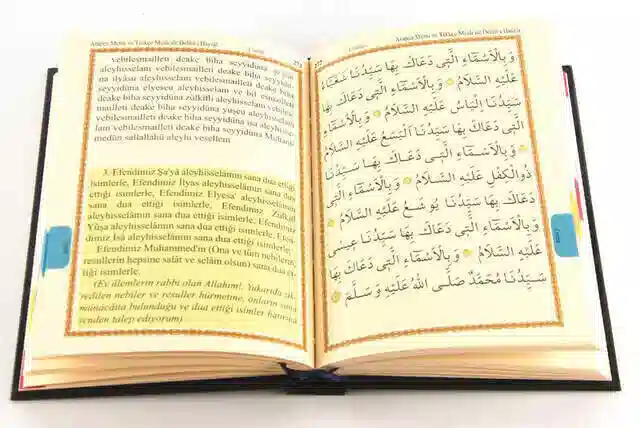 Arapça Metni ve Türkçe Mealiyle Delâil-i Hayrât
vebilesmailleti deake biha seyyidüna
na ilyâsu aleyhisselam vebilesmailleti deake biha
seyyidüna elyeseu aleyhisselam ve bil esmailleti
deake biha seyyidüna zülkifli aleyhisselam vebiles-
mailleti deake biha seyyidüna yuşeu aleyhisselam
vebilesmailleti deake biha seyyidüna isa aleyhisse-
lam vebilesmailleti deake biha seyyidüna Muham-
medün sallallahü aleyhi vesellem
3. Efendimiz Şa'yâ aleyhisselâmın sana dua ettiği
isimlerle, Efendimiz İlyas aleyhisselâmın sana dua
ettiği isimlerle, Efendimiz Elyesa' aleyhisselâmın
sana dua ettiği isimlerle, Efendimiz Zülkifl
aleyhisselâmın sana dua ettiği isimlerle, Efendimiz
Yûşa aleyhisselâmın sana dua ettiği isimlerle, Efen-
dimiz Îsâ aleyhisselâmın sana dua ettiği isimlerle,
Efendimiz Muhammed'in (Ona ve tüm nebilerin,
resullerin hepsine salât ve selâm olsun) sana dua et-
tiği isimlerle.
(Ey âlemlerin rabbi olan Allahım! Yukarıda zik-
redilen nebiler ve resuller hürmetine, onların sana
münâcâtta bulunduğu ve dua ettiği isimler hatırına
senden talep ediyorum)
Arapça Metni ve Türkçe Mealiyle Delâil-i Hayrât
وَبِالْاَسْمَاءِ الَّتِى دَعَاكَ بِهَا سَيِّدُنَا شَعْيَاءُ
عَلَيْهِ السَّلَامُ وَبِالْاَسْمَاءِ الَّتِى دَعَاكَ بِهَا
سَيِّدُنَا اِلْيَاسُ عَلَيْهِ السَّلَامُ وَبِالْاَسْمَاءِ
الَّتِى دَعَاكَ بِهَا سَيِّدُنَا الْيَسَعُ عَلَيْهِ السَّلَامُ
وَبِالْاَسْمَاءِ الَّتِى دَعَاكَ بِهَا سَيِّدُنَا
ذُوالْكِفْلِ عَلَيْهِ السَّلَامُ وَبِالْاَسْمَاءِ الَّتِى
دَعَاكَ بِهَا سَيِّدُنَا يُوشَعُ عَلَيْهِ السَّلَامُ
وَبِالْاَسْمَاءِ الَّتِى دَعَاكَ بِهَا سَيِّدُنَا عِيسَى
عَلَيْهِ السَّلَامُ وَبِالْاَسْمَاءِ الَّتِى دَعَاكَ بِهَا
سَيِّدُنَا مُحَمَّدٌ صَلَّى اللهُ عَلَيْهِ وَسَلَّمَ